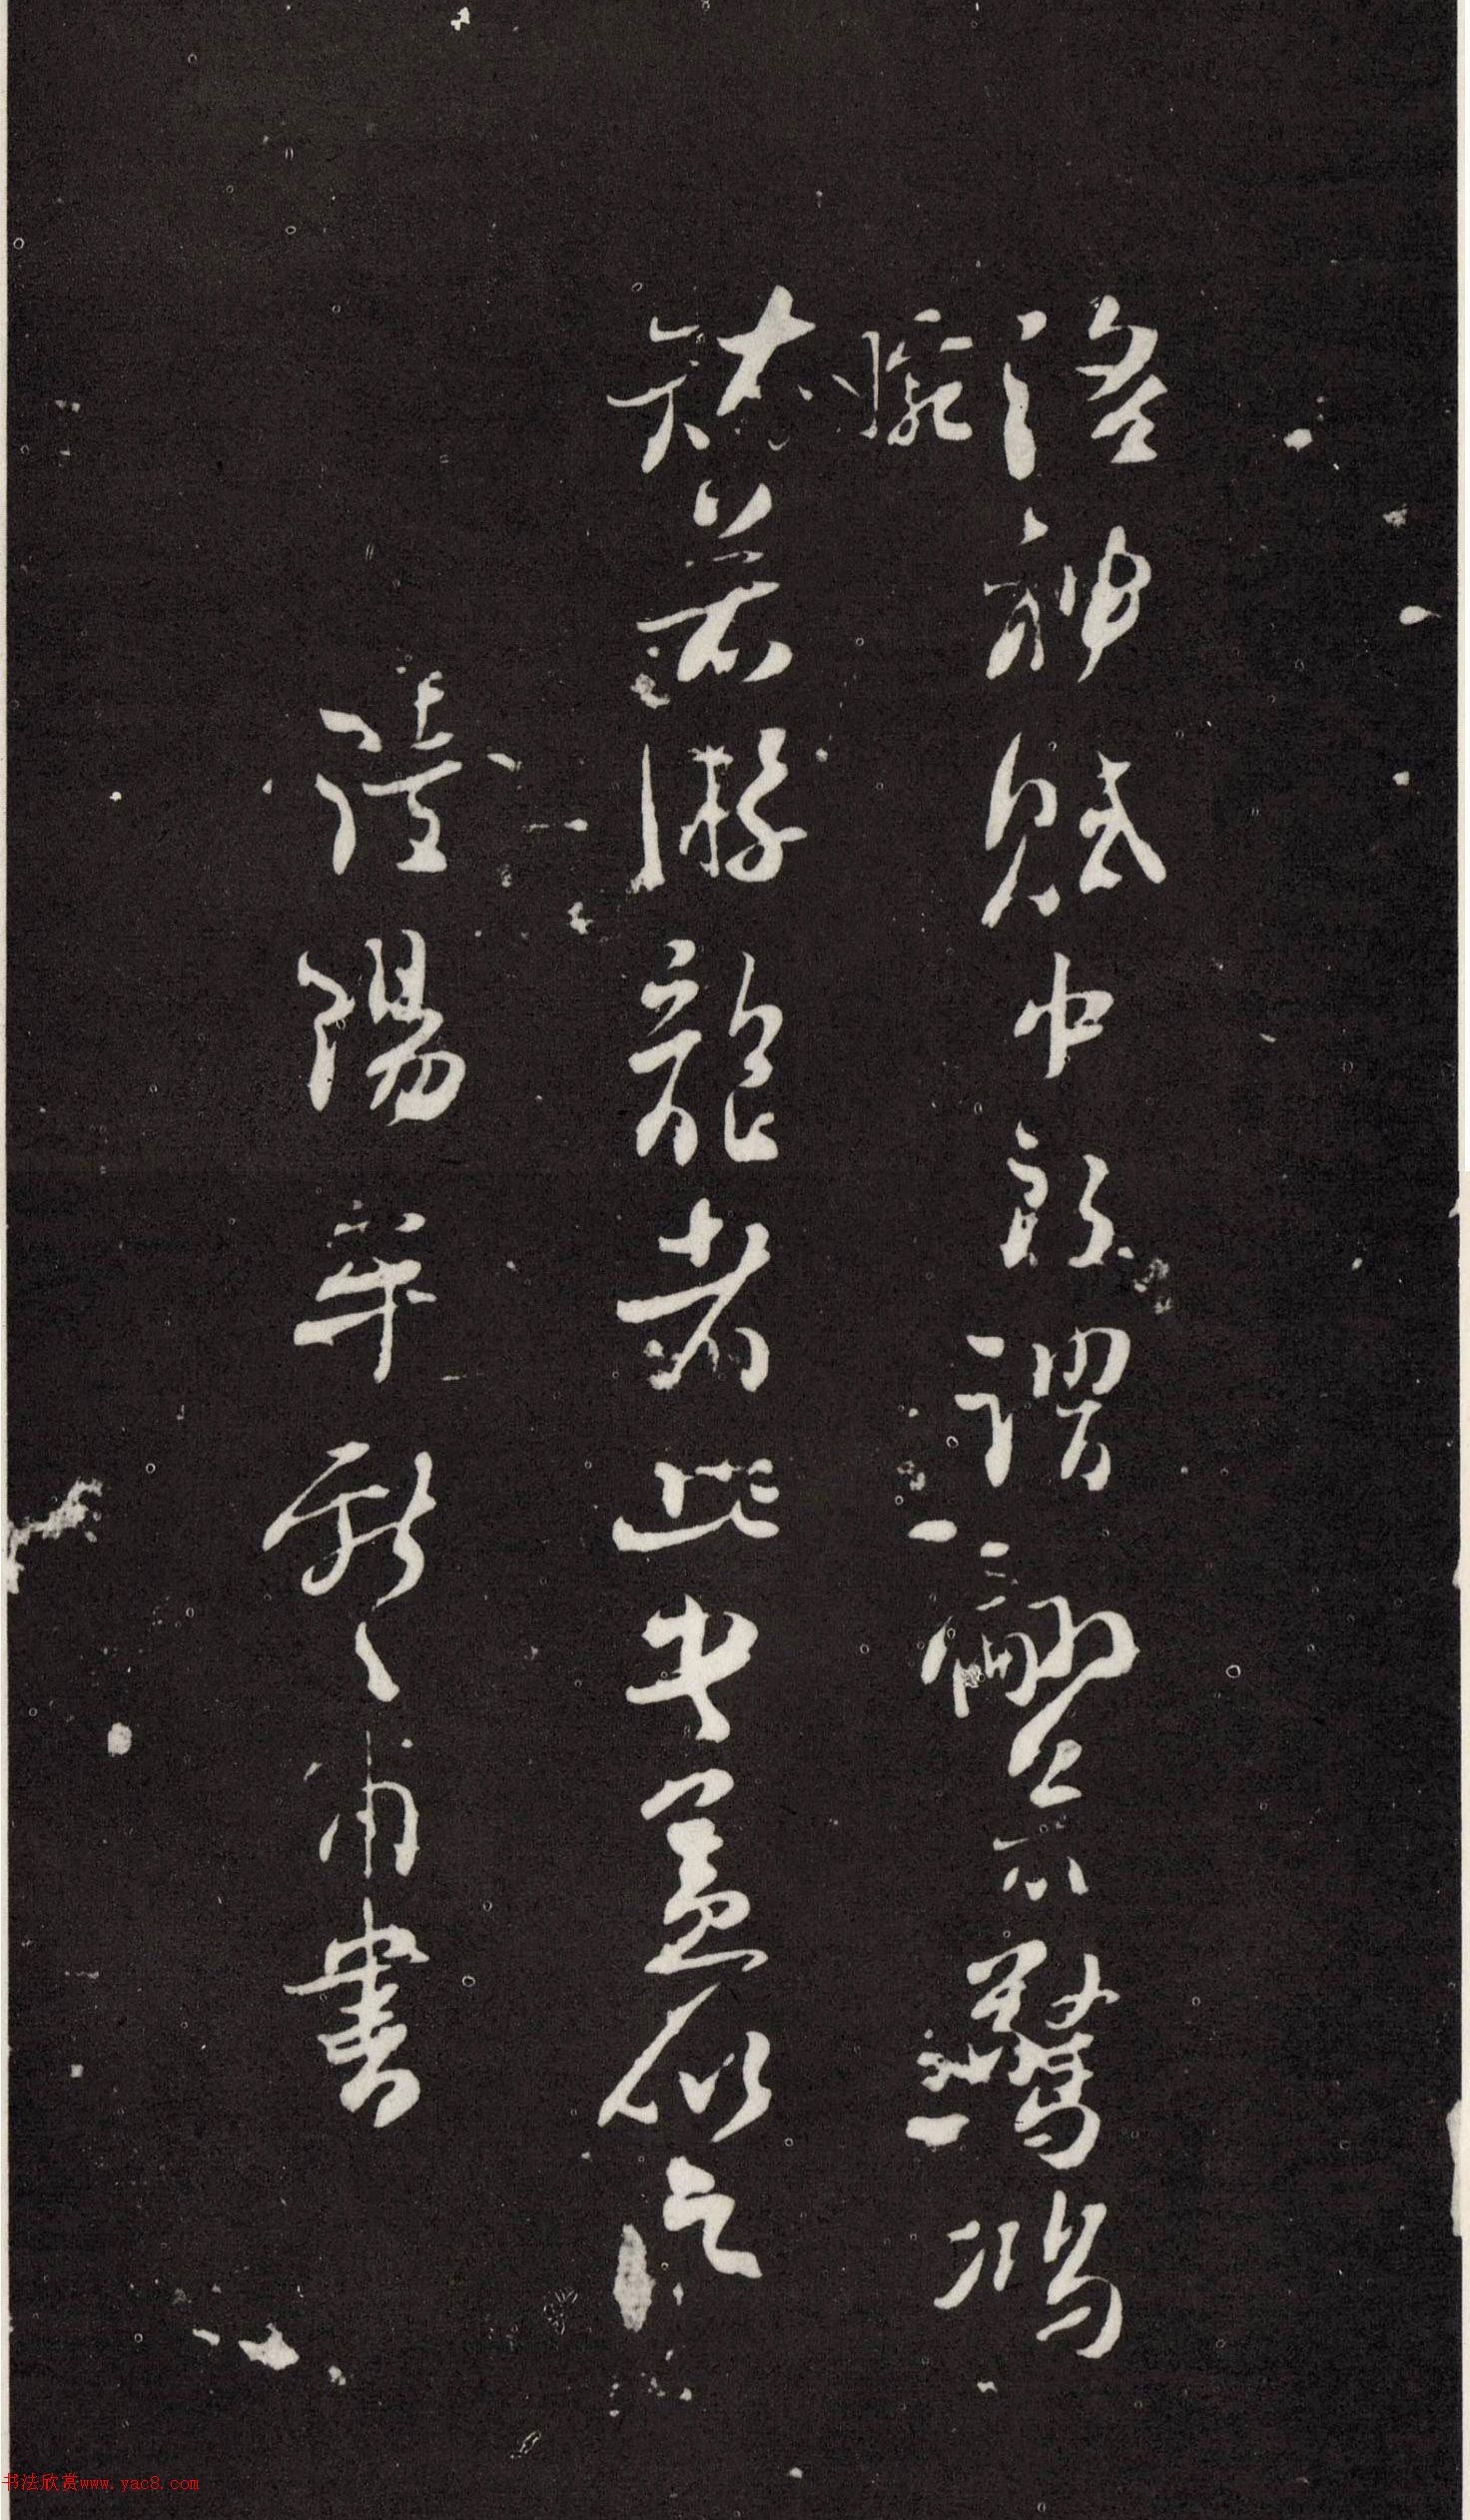 洛神賦中所謂翩若驚鴻
婉若游龍者此書蓋似之
陵陽牟巘巘甫書
书法欣赏www.yac8.com